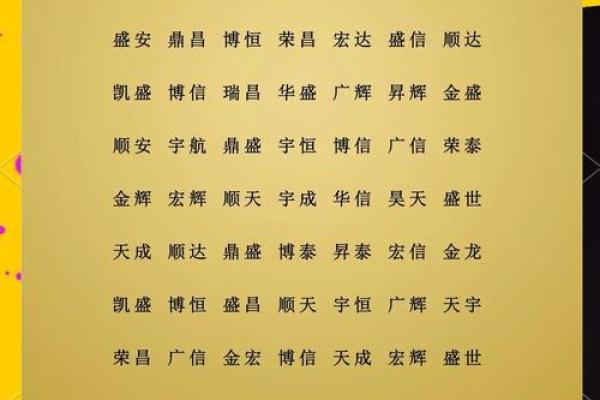 盛安 鼎昌 博恒 荣昌 宏达 盛信 顺达
凯盛 博信 瑞昌 华盛 广辉 昇辉 金盛
顺安 宇航 鼎盛 宇恒 博信 广信 荣泰
金辉 宏辉 顺天 宇成 华信 昊天 盛世
天成 顺达 鼎盛 博泰 昇泰 宏信 金龙
凯盛 博恒 盛昌 顺天 宇恒 广辉 天宇
荣昌 广信 金宏 博信 天成 宏辉 盛世